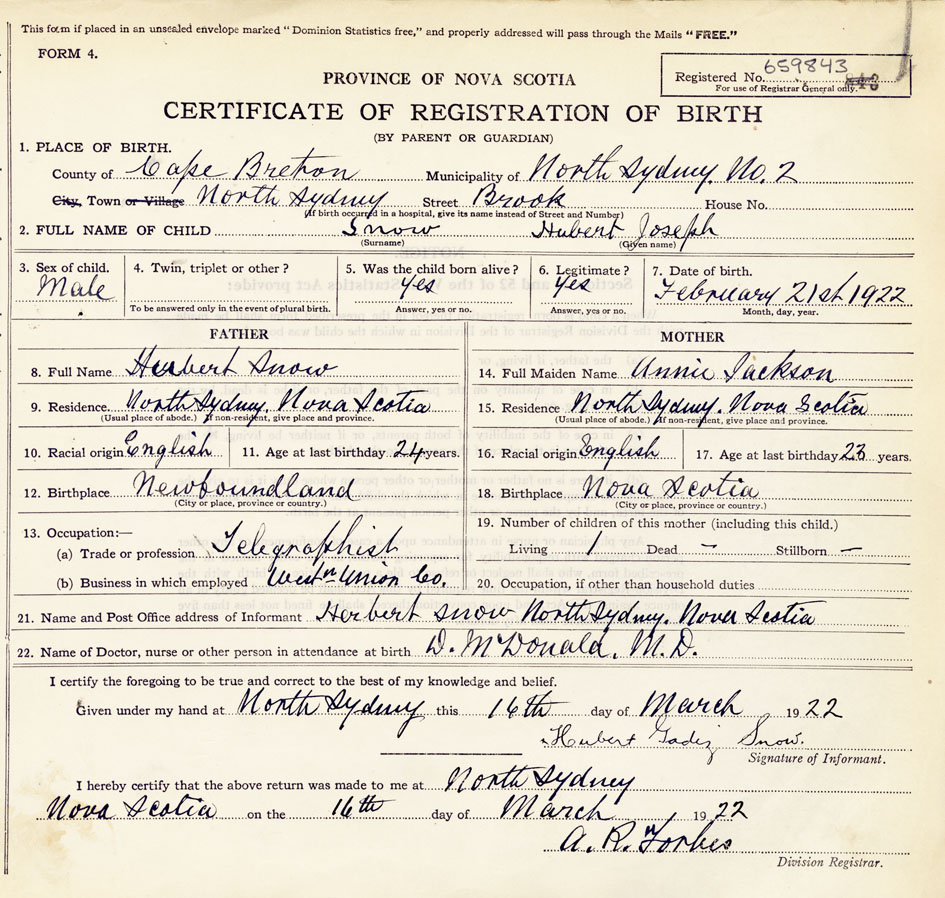 This form if placed in an unsealed envelope marked "Dominion Statistics free," and properly addressed will pass through the Mails "FREE."
FORM 4.
PROVINCE OF NOVA SCOTIA
Registered No. 659843
For use of Registrar General only.
CERTIFICATE OF REGISTRATION OF BIRTH
(BY PARENT OR GUARDIAN)
1. PLACE OF BIRTH.
County of Cape Breton Municipality of North Sydney. No. 2
City, Town or Village North Sydney Street Brook House No.
(If birth occurred in a hospital, give its name instead of Street and Number)
2. FULL NAME OF CHILD Snow Hubert Joseph
(Surname) (Given name)
3. Sex of child. 4. Twin, triplet or other? 5. Was the child born alive? 6. Legitimate? 7. Date of birth.
Male Yes Yes February 21st 1922
To be answered only in the event of plural birth. Answer, yes or no. Answer, yes or no. Month, day, year.
FATHER MOTHER
8. Full Name Herbert Snow 14. Full Maiden Name Annie Jackson
9. Residence. North Sydney. Nova Scotia 15. Residence North Sydney. Nova Scotia
(Usual place of abode.) If non-resident, give place and province. (Usual place of abode.) If non-resident, give place and province.
10. Racial origin English 11. Age at last birthday 24 years. 16. Racial origin English 17. Age at last birthday 23 years.
12. Birthplace Newfoundland 18. Birthplace Nova Scotia
(City or place, province or country.) (City or place, province or country.)
13. Occupation:— 19. Number of children of this mother (including this child.)
(a) Trade or profession Telegraphist Living 1 Dead — Stillborn —
(b) Business in which employed Westn Union Co. 20. Occupation, if other than household duties
21. Name and Post Office address of Informant Herbert Snow North Sydney. Nova Scotia
22. Name of Doctor, nurse or other person in attendance at birth D. McDonald, M.D.
I certify the foregoing to be true and correct to the best of my knowledge and belief.
Given under my hand at North Sydney this 16th day of March 1922
Hubert Snow.
Signature of Informant.
I hereby certify that the above return was made to me at North Sydney
Nova Scotia on the 16th day of March 1922
A. R. Forbes
Division Registrar.